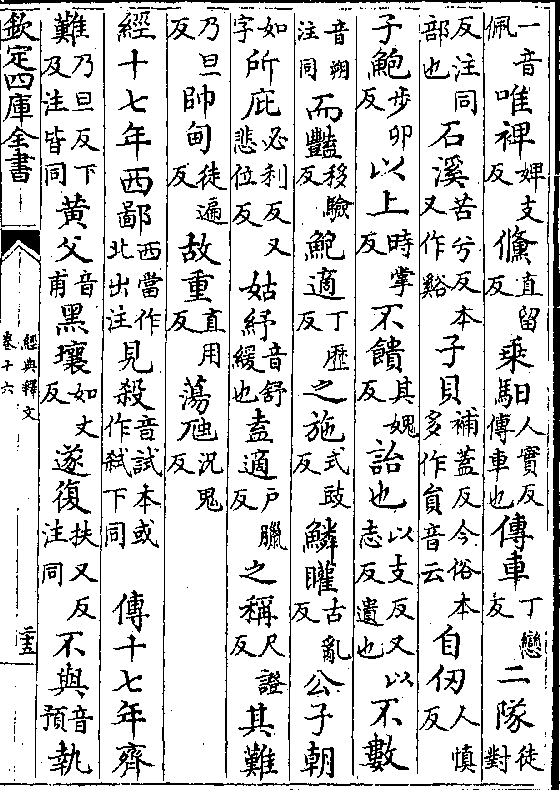 佩一音唯裨婢支反鯈直留反乘馹人實反傳車也傳車丁戀反二隊徒對
反注同部也石溪苦兮反本又作谿子貝補蓋反今俗本多作員音云自仞人慎反
子鮑步卯反以上時掌反不饋其媿反詒也以支反又以志反遺也不數
音朔注同而豔移驗反鮑適丁歷反之施式豉反鱗矔古亂反公子朝
如字所庇必利反又悲位反姑紓音舒緩也盍適戶臘反之稱尺證反其難
乃旦反帥甸徒遍反故重直用反蕩虺況鬼反
經十七年西鄙西當作北出注見殺音試本或作弑下同傳十七年齊
難乃旦反下及注皆同黃父音甫黑壤如丈反遂復扶又反注同不與音預執
欽定四庫全書
經典釋文
卷十六
二十五